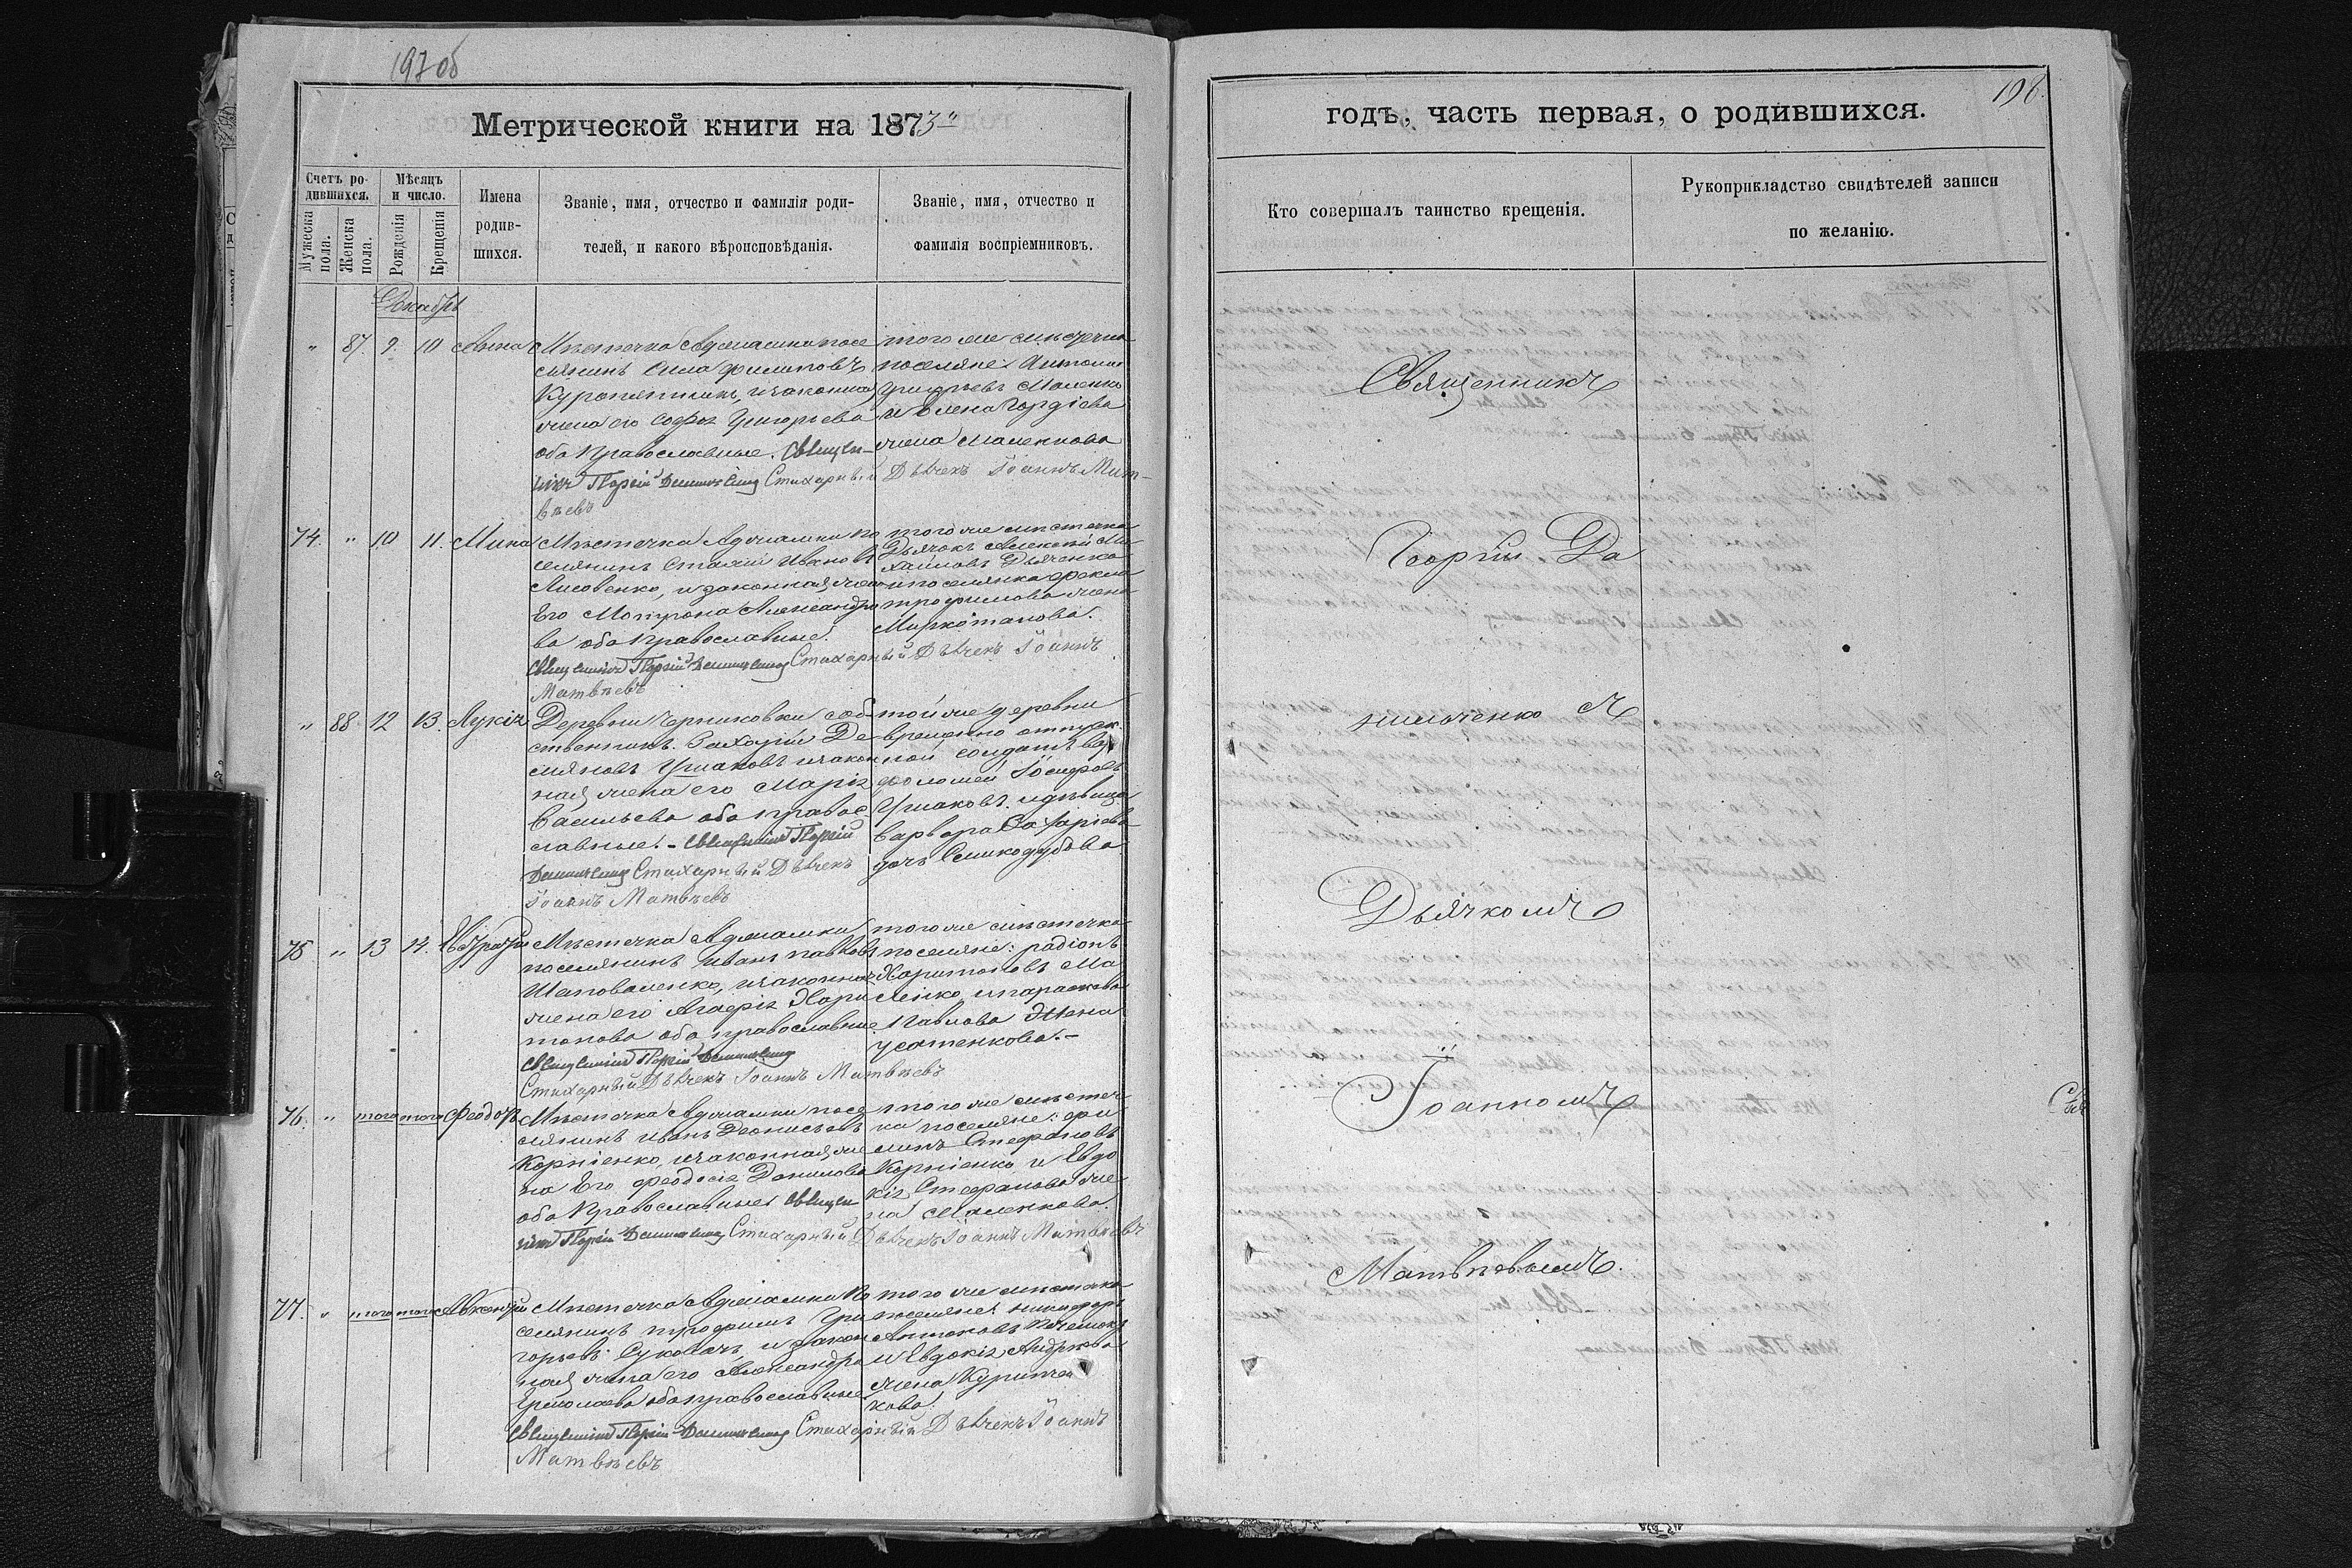 197об
Метрической книги на 1873й
Счетъ родившихся.
Мѣсяцъ и число.
Имена родившихся.
Званіе, имя, отчество и фамилія родителей, и какого вѣроисповѣданія.
Званіе, имя, отчество и фамилія воспріемниковъ.
Мужеска пола.
Женска пола.
Рожденія
Крещенія
Декабрь
" 87. 9. 10 Анна
Мѣстечка Аджамки посе
лянинъ Сила Филиповъ
и законная
жена его Софія Григорьева
оба Православные. Священ-
никъ Георгій Стихарный Дьячекъ Іоаннъ Мат-
вѣевъ
того же мѣстечка
поселяне Антонъ
Григорьевъ Маленко
и Елена Гордіева
жена Маленкова
74. " 10 11. Мина
Мѣстечка Аджамки по
селянинъ Ивановъ
Лисовенко, и законная жена
Его Мотрона Александро
ва оба православные.
Священникъ Георгій Стихарный Дьячекъ Іоаннъ
Матвѣевъ
того же мѣстечка
Дьячокъ Алексей Ми
хайловъ Дьяченко
и поселянка Фекла
трофимова жена
" 88 12 13. Лукія
Деревни Черниковки соб
ственникъ Захарій Де
мяновъ Ушаковъ и закон
ная жена его Марія
Васильева оба правос
лавные. - Священникъ Георгій
Стихарный Дьячекъ
Іоаннъ Матвѣевъ
той же деревни
временно отпуск
ной солдатъ Вар
фоломей Іосифовъ
Ушаковъ и дѣвица
варвара Захаріева
дочь
75 " 13 14. Евграфій
Мѣстечка Аджамки
поселянинъ Иванъ Павловъ
Шаповаленко, и законная
жена его Агафія Хари
тонова оба православные
Священникъ Георгій
Стихарный Дьячекъ Іоаннъ Матвѣевъ
того же мѣстечка
поселяне: радіонъ
Харитоновъ Ма
ленко и параскева
Павлова жена
Усатенкова. -
76. " того того Феодоръ
Мѣстечка Аджамки посе
лянинъ Иванъ Деонисьевъ
Корніенко, и законная же
на Его Феодосія Данилова
оба Православные Священ
никъ Георгій Стихарный Дьячекъ Іоаннъ Матвѣевъ
того же мѣстеч
ка поселяне: Фи
липъ Стефановъ
Корніенко и Евдо
кія Стефанова же
на Маленкова.
77. " того того Авксентій
Мѣстечка Аджамки По
селянинъ трофимъ Гри
горьевъ Суковачъ, и закон
ная жена его Александра
Ермолаева оба православные
Священникъ Георгій Стихарный Дьячекъ Іоаннъ
Матвѣевъ
того же мѣстечка
поселяне: никифоръ
Антоновъ
и Евдокія Андреева
жена
кова.
198.
годъ, часть первая, о родившихся.
Кто совершалъ таинство крещенія.
Рукоприкладство свидѣтелей записи по желанію.
Священникъ
Георгій Да
нильченко съ
Дьячкомъ
Іоанномъ
Матвѣевымъ.